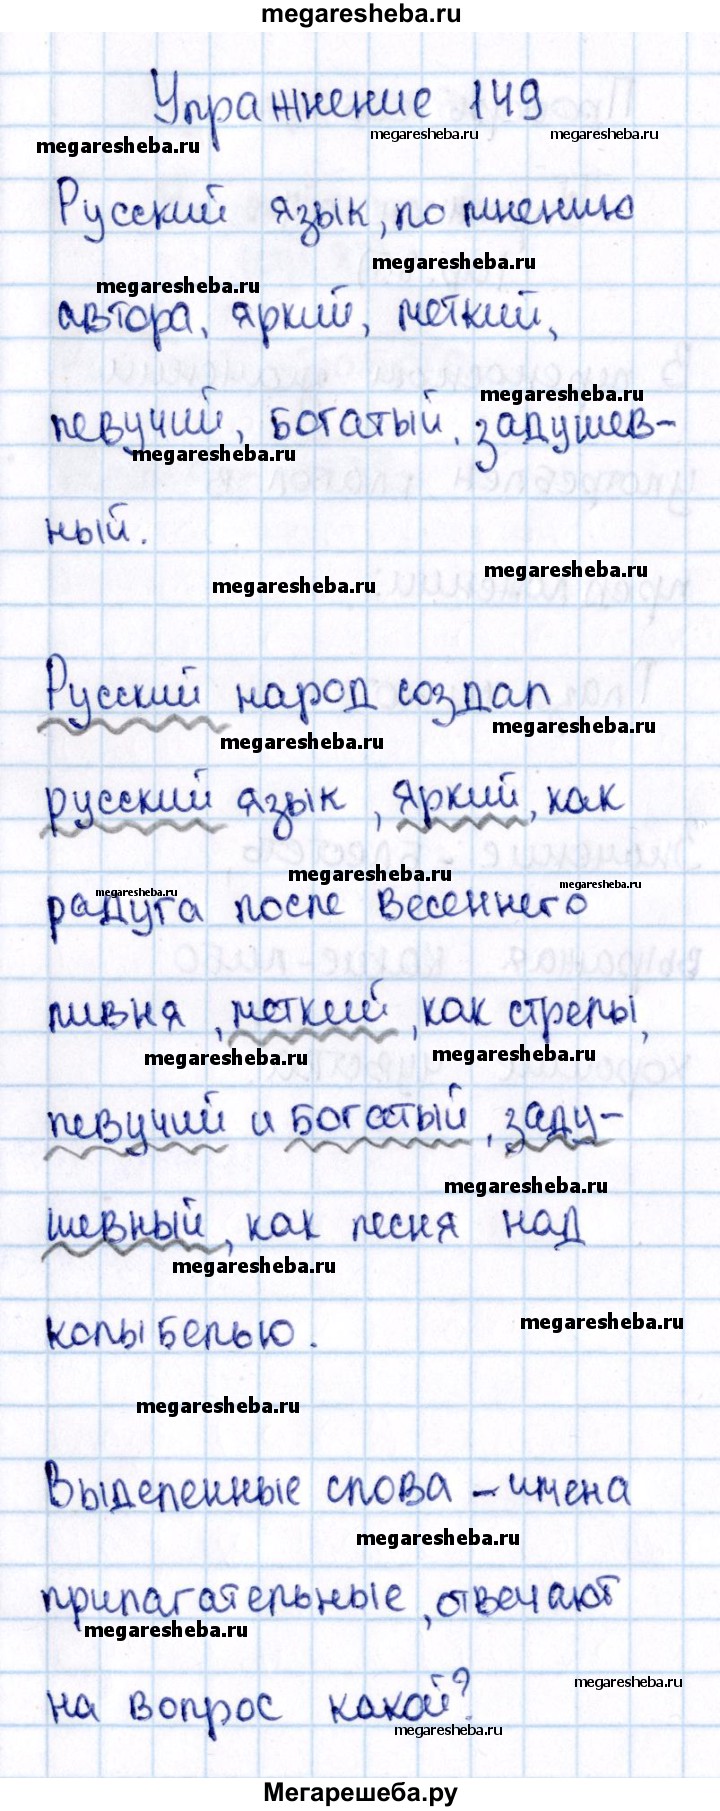 megaresheba.ru
Упражнение 149
megaresheba.ru megaresheba.ru megaresheba.ru
Русский язык, по мнению
megaresheba.ru
megaresheba.ru
автора, яркий, меткий,
megaresheba.ru
певучий, богатый, задушев-
megaresheba.ru
ный.
megaresheba.ru
megaresheba.ru
Русский народ создал
megaresheba.ru
megaresheba.ru
русский язык, яркий, как
megaresheba.ru megaresheba.ru megaresheba.ru
радуга после весеннего
ливня, меткий, как стрелы,
megaresheba.ru megaresheba.ru
певучий и богатый, заду-
megaresheba.ru
шевный, как песня над
megaresheba.ru
megaresheba.ru
колыбелью.
megaresheba.ru
Выделенные слова - имена
megaresheba.ru
прилагательные, отвечают
megaresheba.ru
megaresheba.ru
на вопрос какой?
megaresheba.ru
Мегарешеба.ру